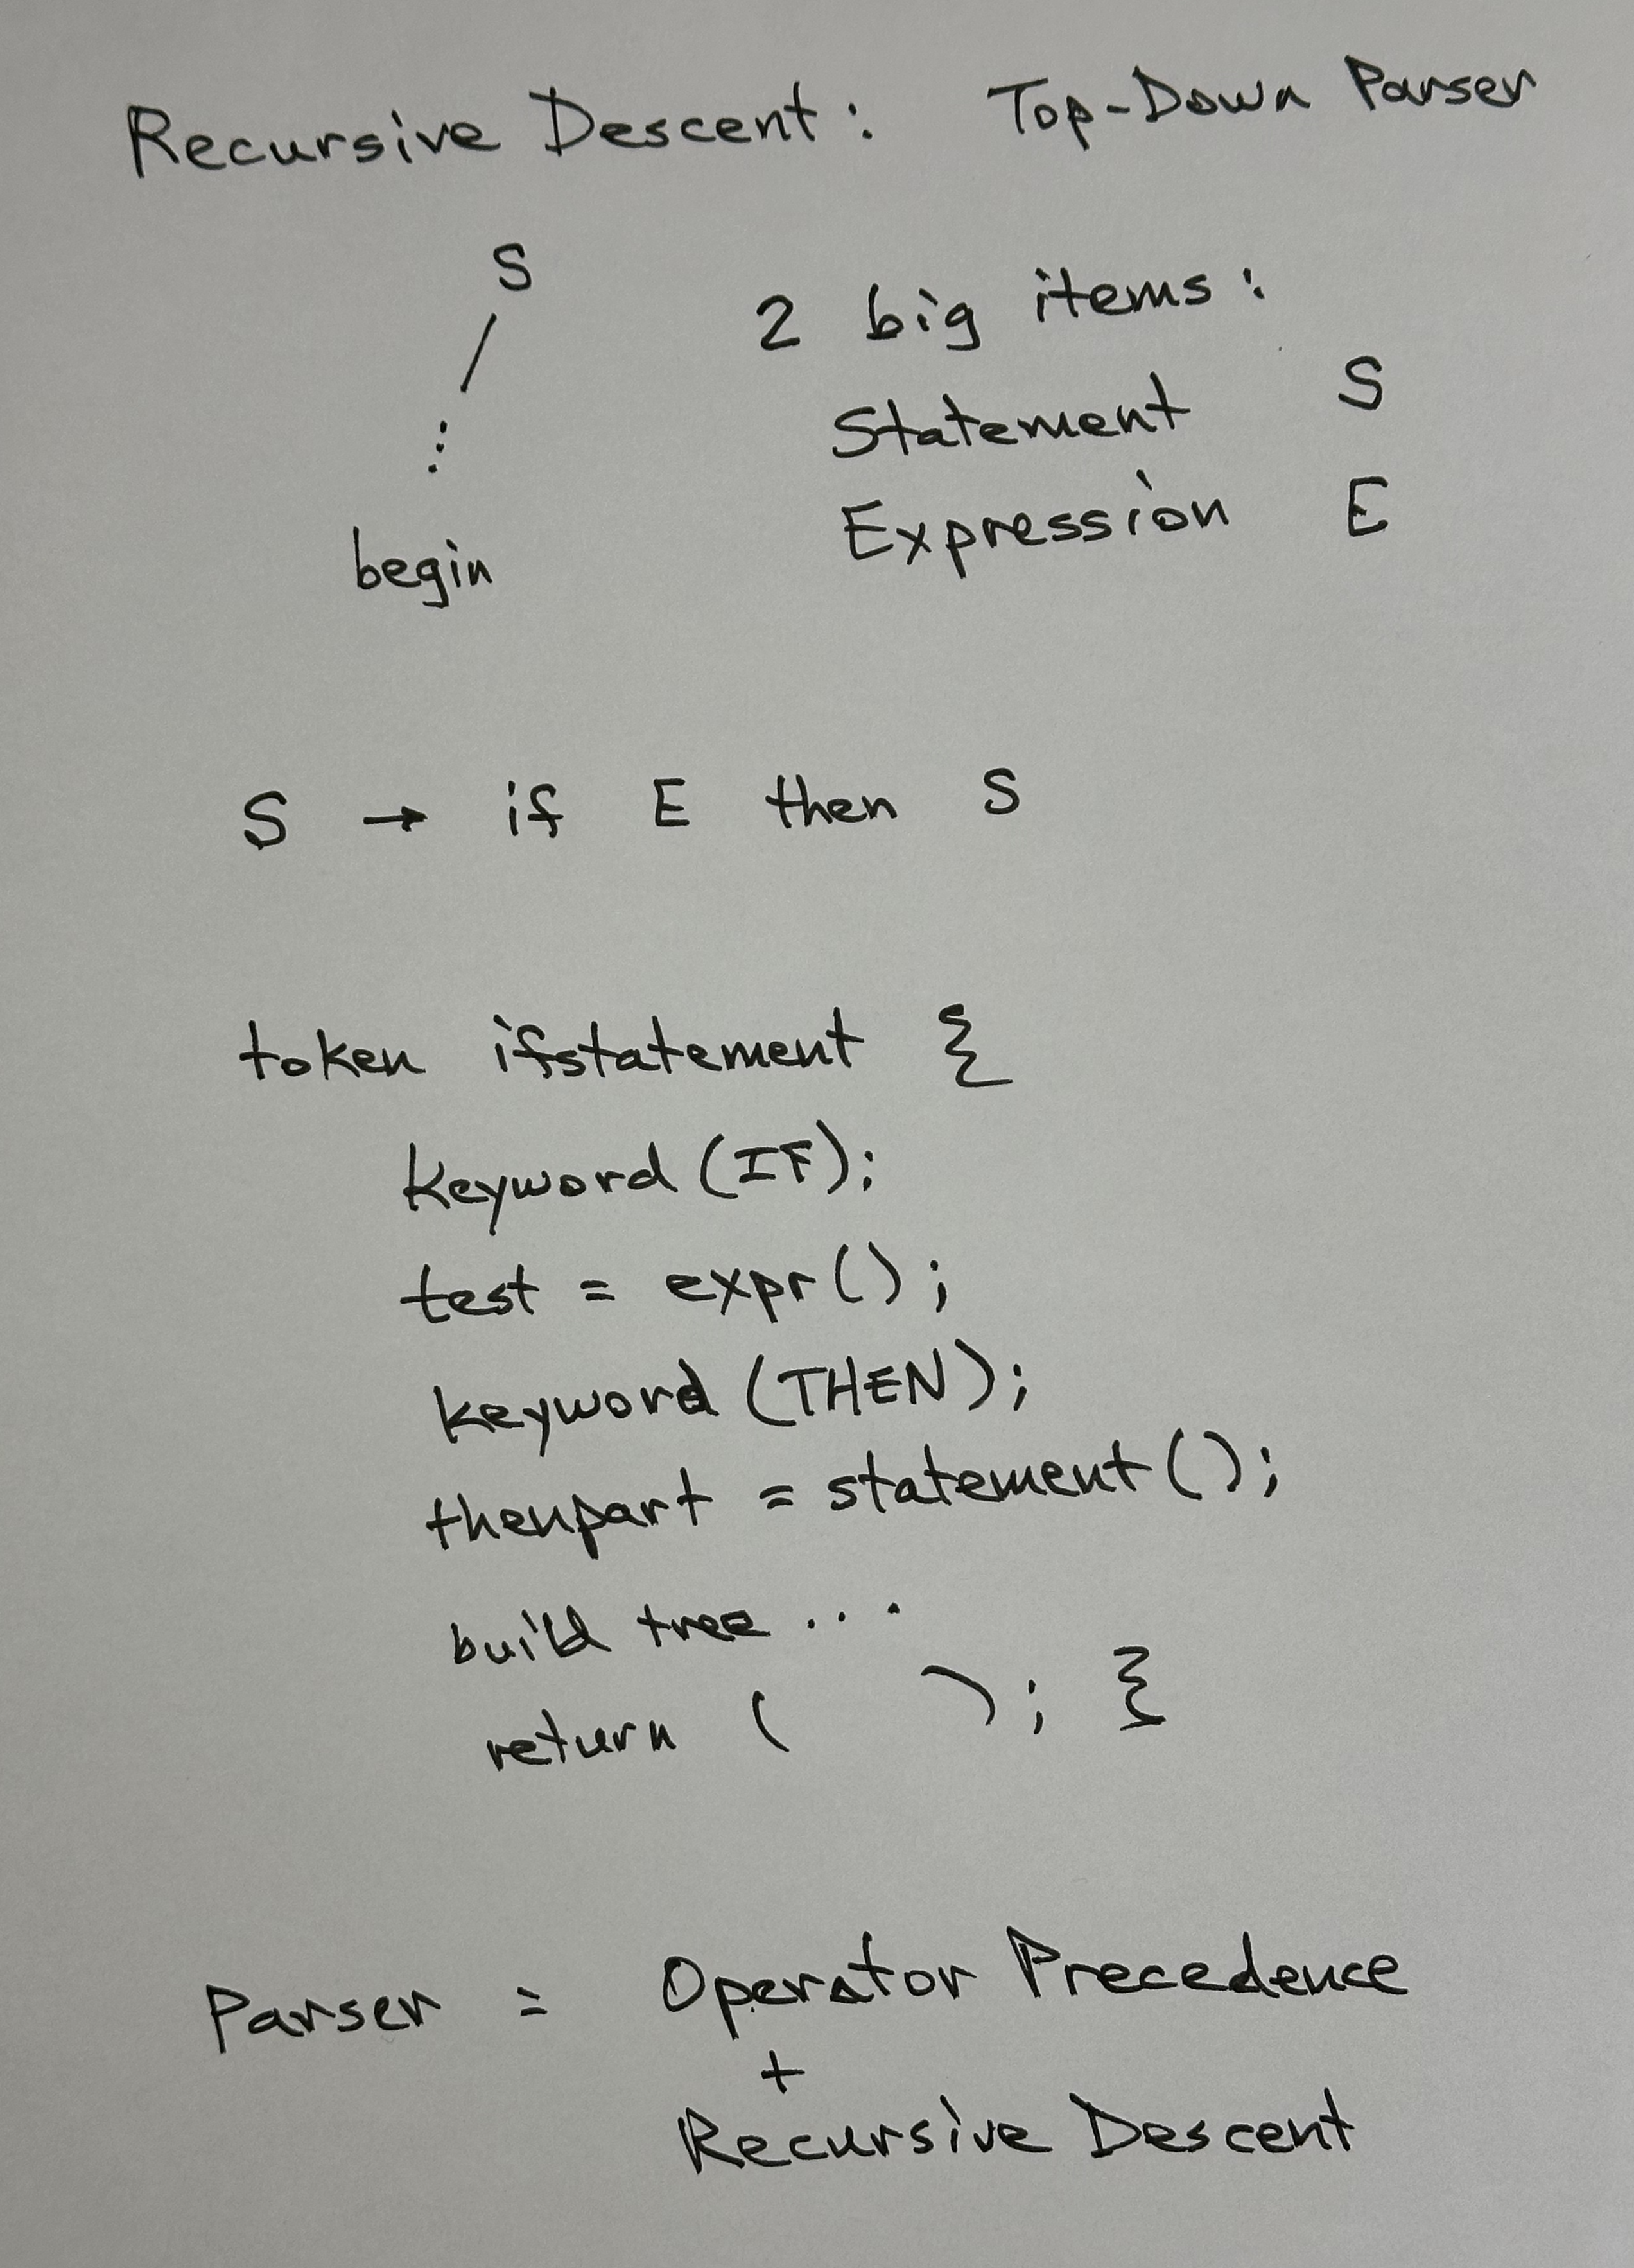 Recursive Descent: Top-Down Parser
S
2 big items:
Statement S
⋮
Expression E
begin
S → if E then S
token ifstatement {
keyword (IF);
test = expr();
keyword (THEN);
thenpart = statement();
build tree ...
return ( ); }
Parser = Operator Precedence
+
Recursive Descent